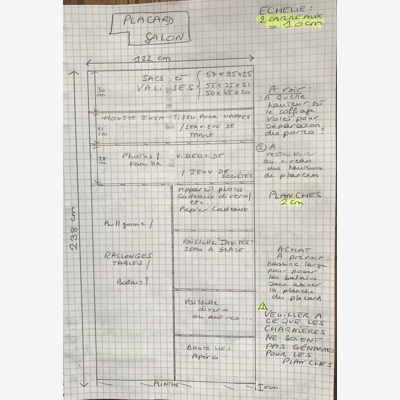 PLACARD
SALON
ECHELLE:
2 CARREAUX
= 10 cm
122 cm
SACS et
VALISES
57 x 35 x 25
55 x 35 x 21
50 x 45 x 20
30 cm
HOUSSE IKEA
TISSU POUR NAPPES
/ SERVIETTE DE
TABLE
Photos /
Famille
VIDEOS DE
/ JEUX DE
SOCIÉTÉ
Appareil photos
Cadeaux divers /
etc..
Papier cadeaux
238 cm
RALLONGES
TABLES /
Balais !
VAISSELLE INVITÉS
SEAU A GLACE
Vaisselle
divers
ou autres
BOUTEILLES
Apéro
PLINTHE
A voir:
A quelle
hauteur est
le coffrage
volet pour
séparation
des portes?
A
au niveau
des hauteurs
de planches
PLANCHES
2 cm
ACHAT
A prevoir:
large
pour poser
les balais
sans abimer
la planche
du placard
VEUILLER A
CE QUE LES
CHARNIÈRES
NE SOIENT
PAS GÉNANTES
POUR LES
PLANCHES